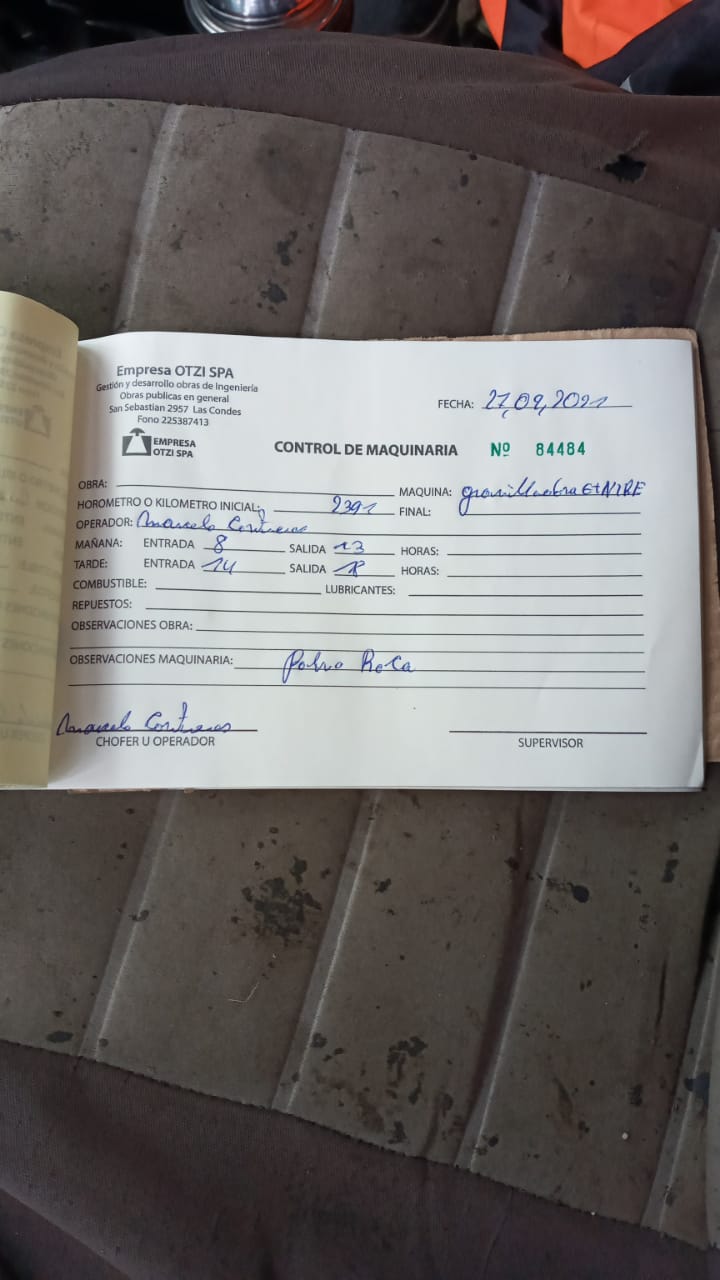 Empresa OTZI SPA
Gestión y desarrollo obras de Ingeniería
Obras publicas en general
San Sebastian 2957 Las Condes
Fono 225387413
EMPRESA
OTZI SPA
FECHA: 27,09,2021
CONTROL DE MAQUINARIA Nº 84484
OBRA: MAQUINA: gravilladora
HOROMETRO O KILOMETRO INICIAL: 2391 FINAL:
OPERADOR: Marcelo Contreras
MAÑANA: ENTRADA 8 SALIDA 13 HORAS:
TARDE: ENTRADA 14 SALIDA 18 HORAS:
COMBUSTIBLE: LUBRICANTES:
REPUESTOS:
OBSERVACIONES OBRA:
OBSERVACIONES MAQUINARIA: Polvo Roca
Marcelo Contreras
CHOFER U OPERADOR SUPERVISOR